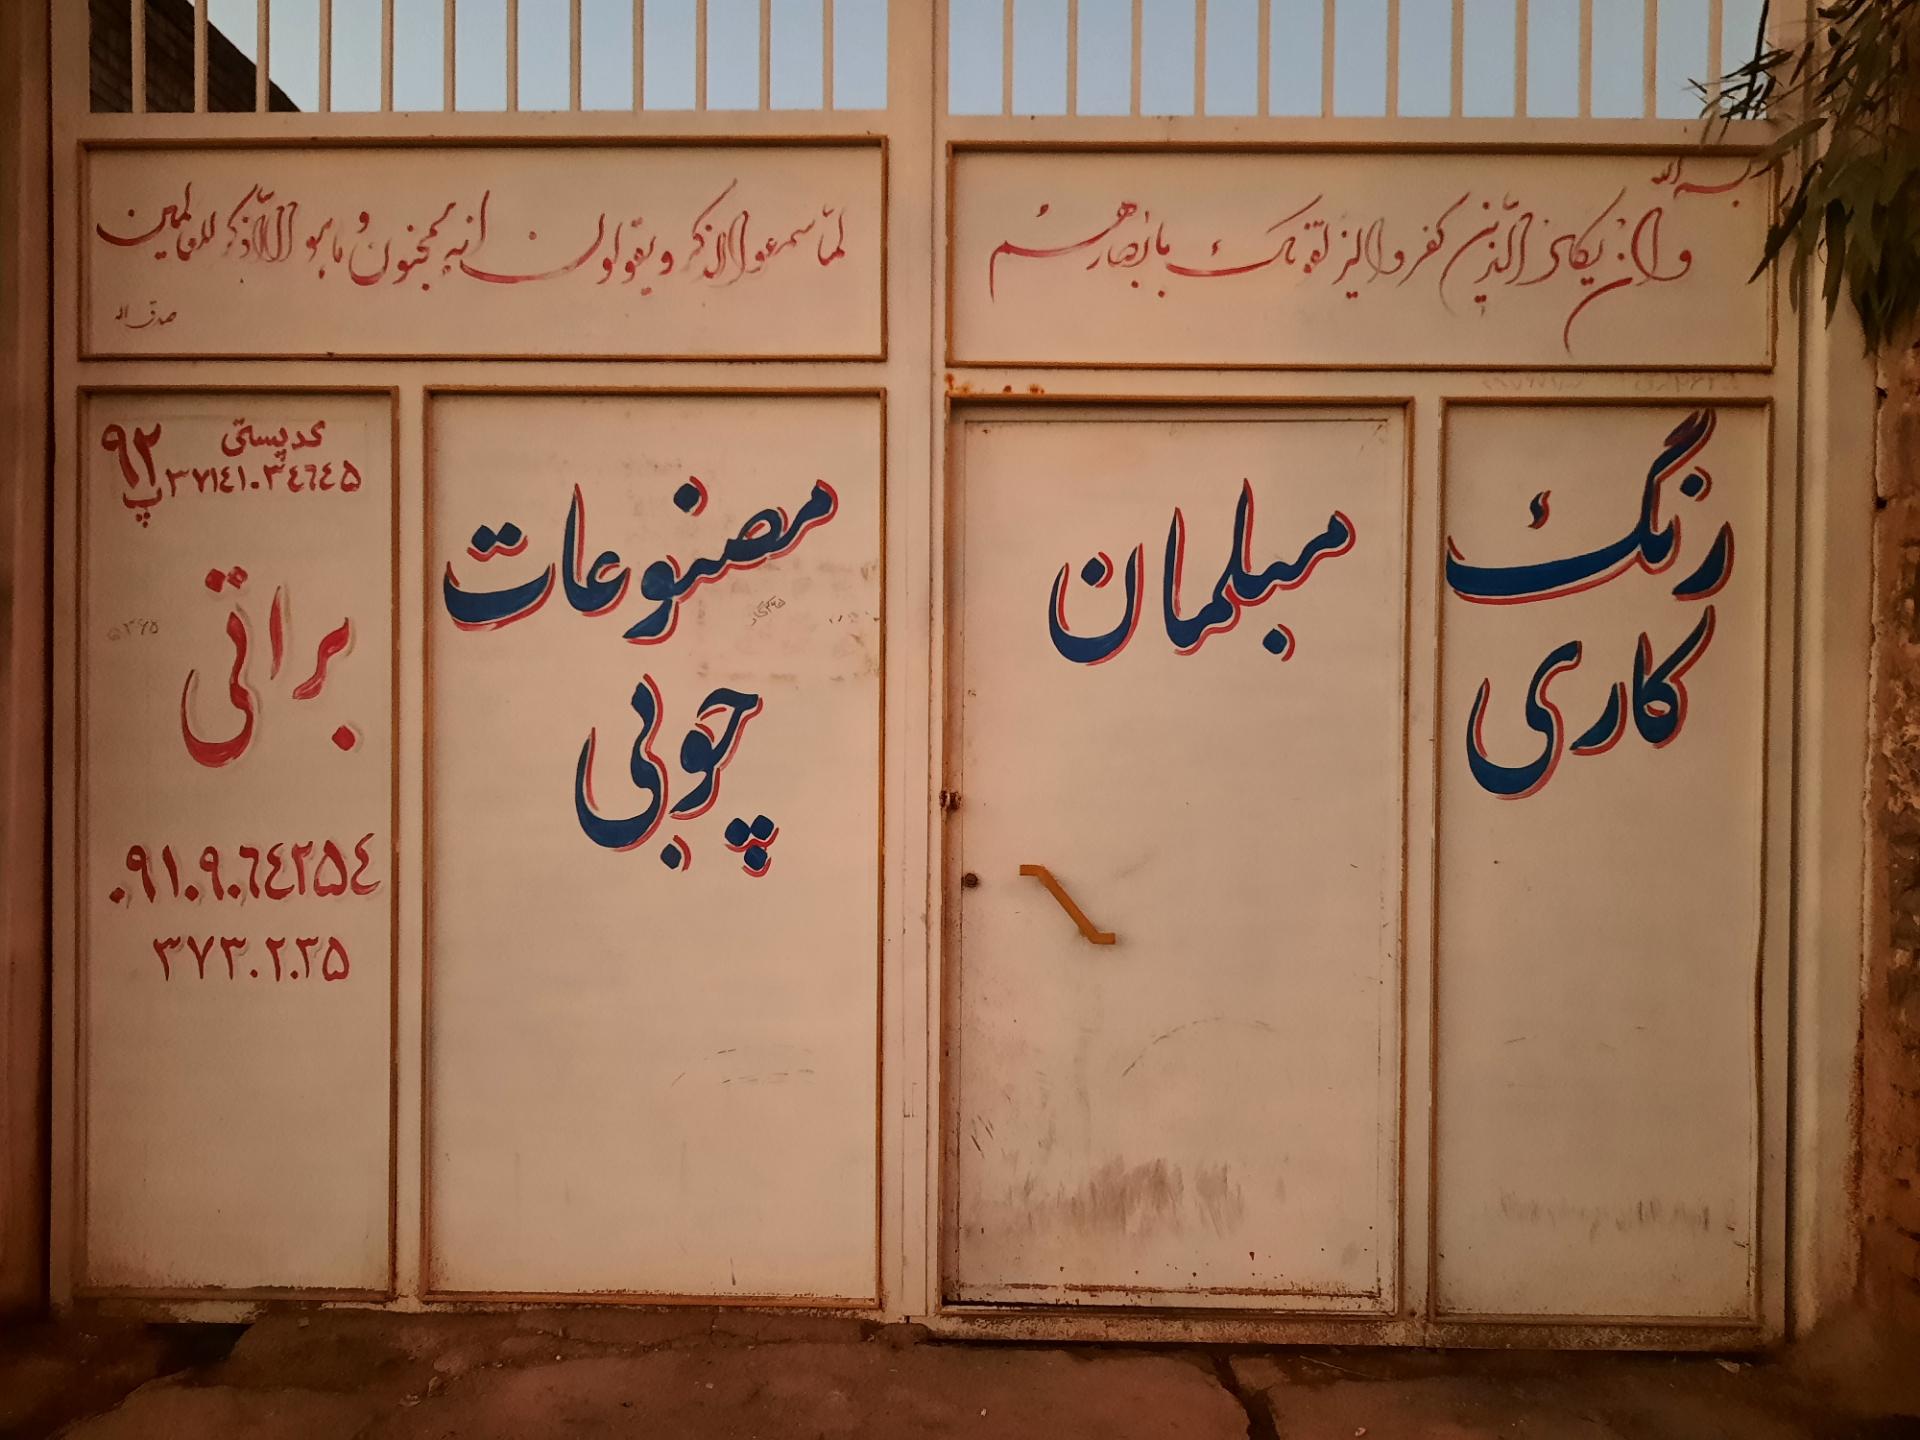 بسم الله
وان یکاد الذین کفروا لیزلقونک بابصارهم
لما سمعوا الذکر و یقولون انه لمجنون و ما هو الا ذکر للعالمین
صدق اله
رنگ
کاری
مبلمان
مصنوعات
چوبی
کد پستی
۳۷۱٤۱۰۳٤٦٤۵
۹۲
پ
براتی
۰۹۱۰۹۰٦٤۲۵٤
۳۷۳۰۲۰۳۵